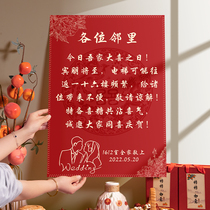 各位邻里
今日吾家大喜之日！
宾朋将至，电梯可能往
返一十六楼频繁，给诸
位带来不便，敬请谅解！
特备喜糖共沾喜气，
诚邀大家同喜欢贺！
1612室全家敬上
2022.05.20
Wedding